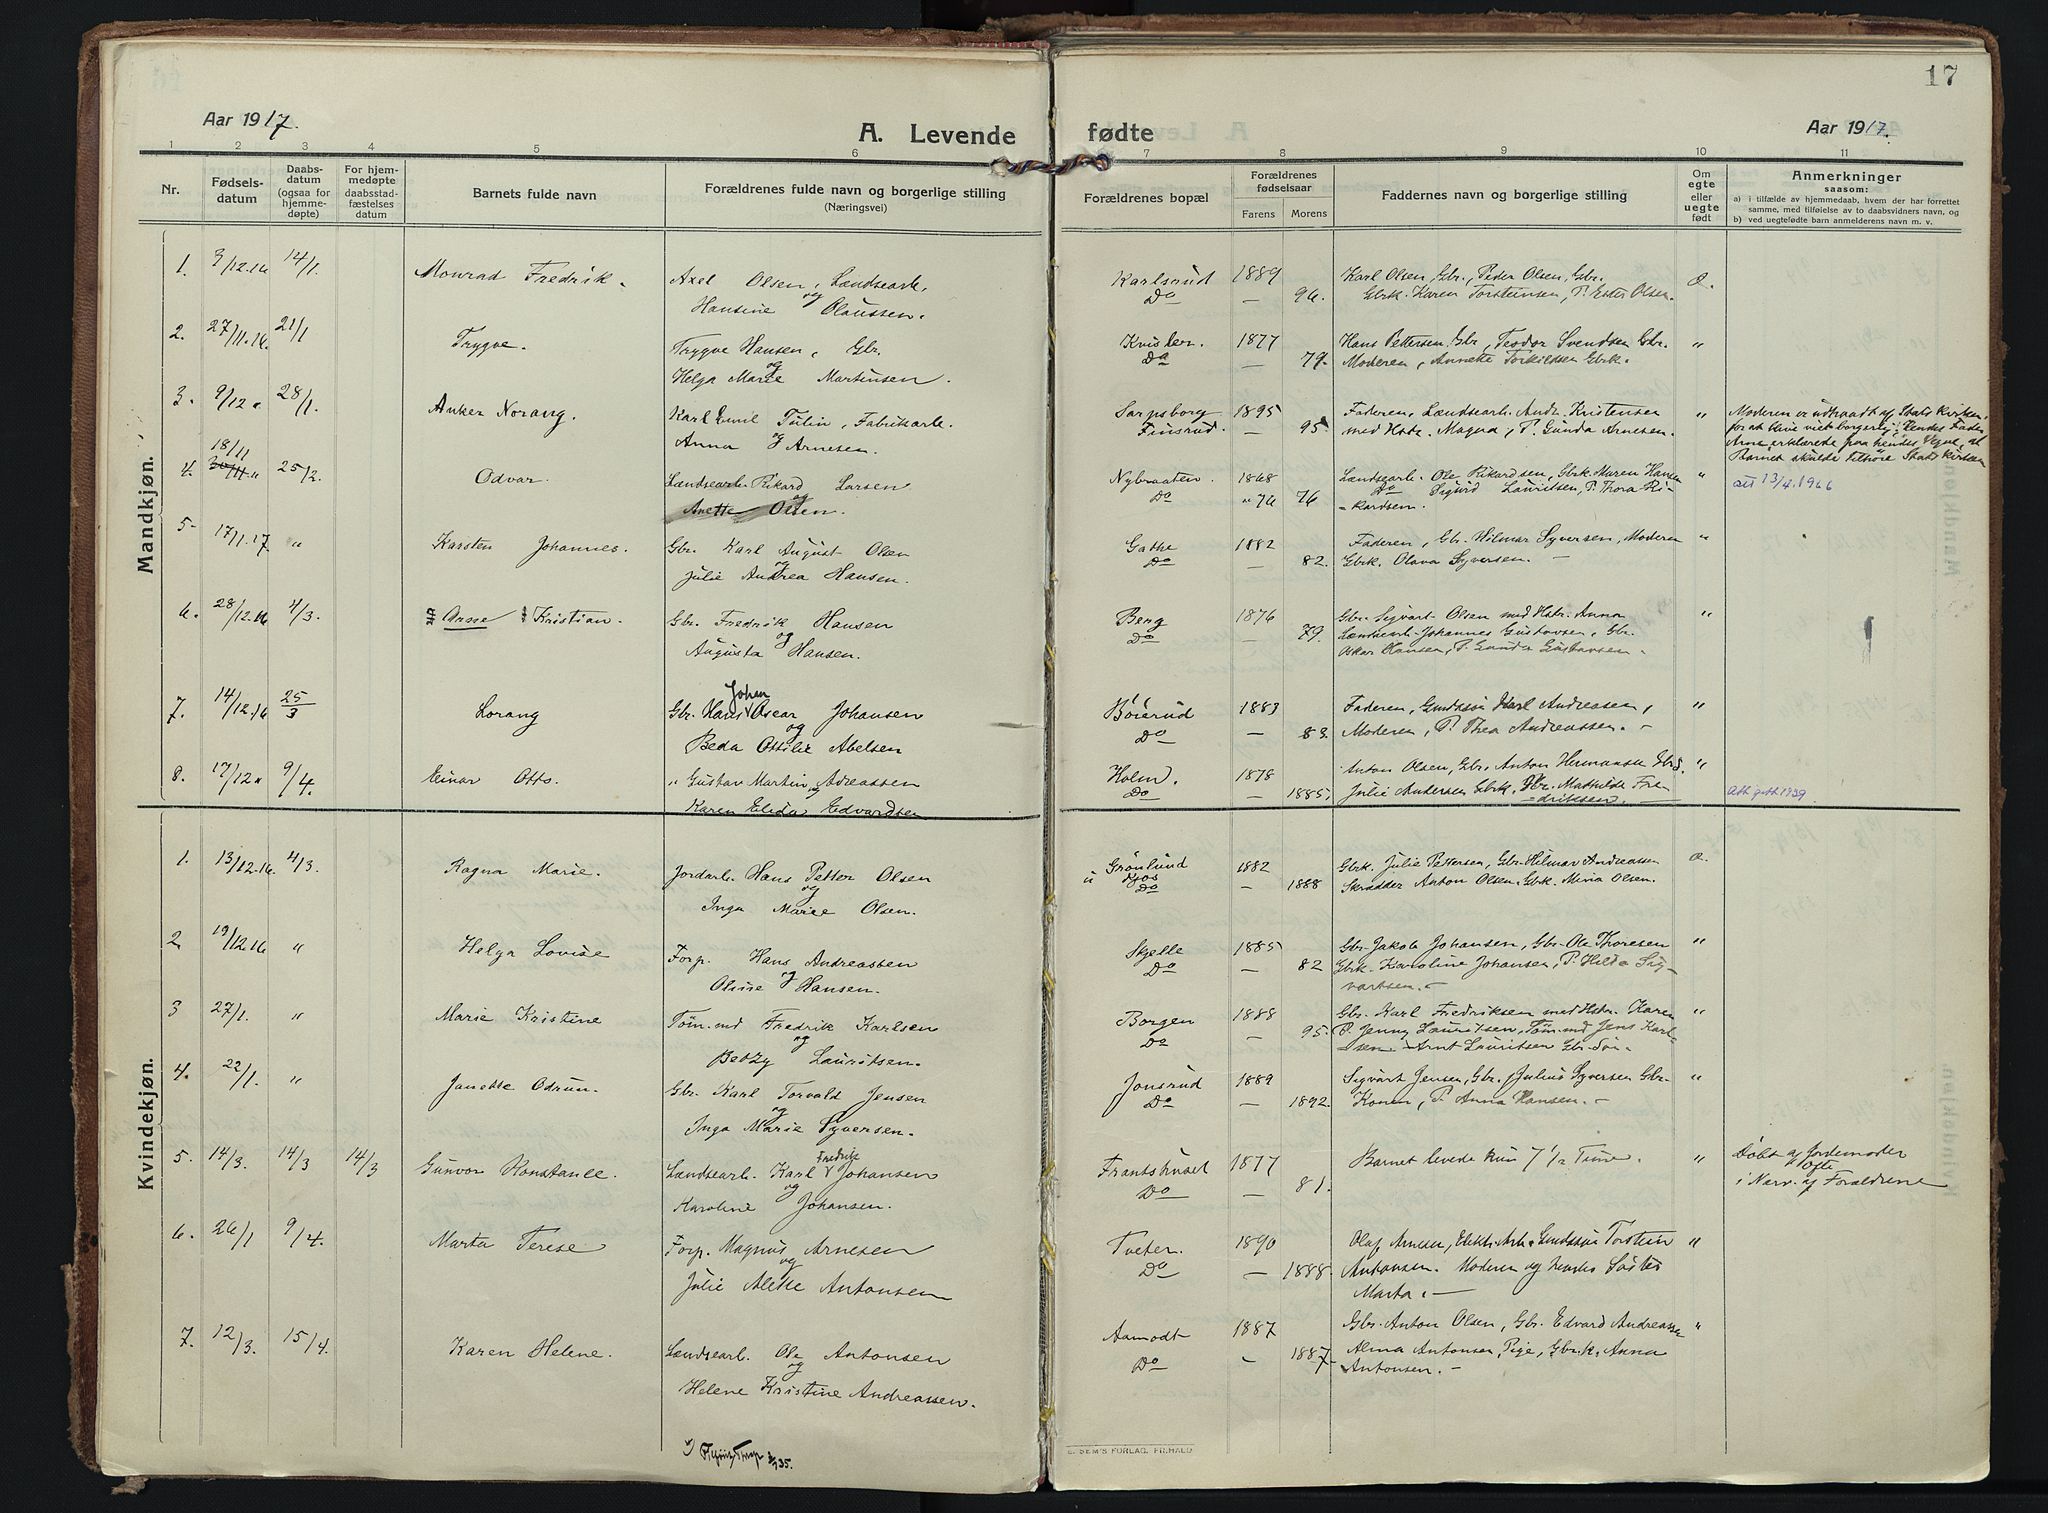 17
Aar 1917.
A. Levende
fødte
Aar 1917.
1 2 3 4 5 6 7 8 9 10 11
Nr.
Fødsels-
datum
Daabs-
datum
(ogsaa for
hjemme-
døpte)
For hjem-
medøpte
daabsstad-
fæstelses
datum
Barnets fulde navn
Forældrenes fulde navn og borgerlige stilling
(Næringsvei)
Forældrenes bopæl
Forældrenes
fødselsaar
Farens Morens
Faddernes navn og borgerlige stilling
Om
egte
eller
uegte
født
Anmerkninger
saasom:
a) i tilfælde av hjemmedaab, hvem der har forrettet
samme, med tilføielse av to daabsvidners navn, og
b) ved uegtefødte barn anmelderens navn m. v.
Mandkjøn.
1. 9/12.16 14/1. Monrad Fredrik. Axel Olsen, Landsearb. Karlsrud 1889 Karl Olsen, Gbr., Peder Olsen, Gbr.
og Hansine Olaussen. Do — 96. Gbrk. Karen Torsteinsen, P. Ester Olsen.
2. 27/11.16. 21/1 Trygve. Trygve Hansen, Gbr. 1877 Hans Pettersen Gbr, Teodor Svendsen Gbr. "
og Helga Marie Martinsen. Do — 79. Moderen, Annette Torkildsen Gbrk.
3. 9/12 " 28/1. Anker Norang. Karl Emil Tulin, Fabriksarb. Sarpsborg 1895 Faderen, Landsearb. Andr. Kristensen " Moderen er udtraadt af Stats Kirken
Anna J Arnesen. Finsrud. 95. med Hstr. Magna, P. Gunda Arnesen. for at blive viet borgerlig; hendes Fader
Arne erklærede paa hendes Vegne, at
Barnet skulde tilhøre Stats Kirken
18/11
4. 25/2. Odvar. Landsearb. Rikard Larsen Nybraaten 1868 Landsearb. Ole Rikardsen, Gbrk. Maren Hansen " att 13/4.1966
og Anette Olsen. Do " 76 76 Do Sigurd Lauritsen, P. Thora Ri-
kardsen.
5 17/1.17 " Karsten Johannes. Gbr. Karl August Olsen 1882 Faderen, Gbr. Hilmar Syversen, Moderen "
og Julie Andrea Hansen. Do — 82. Gbrk. Olava Syversen. —
6. 28/12.16 4/3. Kristian. Gbr. Fredrik Hansen Berg 1876 Gbr. Sigvart Olsen med Hstr. Anna "
og Augusta Hansen. Do — 79. Landsearb. Johannes Gustavsen, Gbr.
Oskar Hansen, P. Gunda Gustavsen.
Johan
7. 14/12.16 25/3 Lorang Gbr. Hans Oscar Johansen Böierud 1883 Faderen, Karl Andreassen, "
og Beda Ottilie Abelsen Do — 83. Moderen, P. Thea Andreassen. —
8. 17/12 " 9/4. Einar Otto. " Gustav Martin Adreassen Holm. 1878 Anton Olsen, Gbr. Anton Hermansen Gbr. "
og Karen Elida Edvardsen Do — 1885. Julie Andersen Gbrk. Mathilde Fre-
driksen. —
Kvindekjøn.
1. 13/12.16. 4/3. Ragna Marie. Jordarb. Hans Petter Olsen Grönlund 1882 Gbrk. Julie Pettersen, Gbr. Hilmar Andreassen
og Inga Marie Olsen. Do — 1888 Skrædder Anton Olsen. Gbrk. Mina Olsen.
2. 19/12.16 " Helga Lovise Forp. Hans Andreassen Skjelle 1885 Gbr. Jakob Johansen, Gbr. Ole Thoresen "
og Oline Hansen. Do — 82 Gbrk. Karoline Johansen, P. Hilda Sig-
vartsen. —
3 27/1. " Marie Kristine Töm.md Fredrik Karlsen Borgen 1888 Gbr. Karl Fredriksen med Hstr. Karen "
og Betzy Lauritsen. Do — 95. P. Jenny Lauritsen, Töm.md Jens Karl-
sen. Arnt Lauritsen Gbr. Sön.
4. 22/1. " Janette Odrun. Gbr. Karl Torvald Jensen Jonsrud 1889 Sigvart Jensen, Gbr., Julius Syversen Gbr. "
og Inga Marie Syversen. Do — 1892. Konen, P. Anna Hansen. —
Fredrik
5. 14/3. 14/3 14/3 Gunvor Konstanse. Landsearb. Karl Johansen 1877 Barnet levede kun 7 1/2 Time. " Döbt af Jordemoder
og Karoline Johansen. Do — 81. i Nærv. af Forældrene
6. 26/1 9/4. Marta Terese Forp. Magnus Arnesen Tveter. 1890 Olaf Arnesen, Torstein "
og Julie Alette Antonsen Do — 1888. Antonsen. Moderen og hendes Söster
Marta. —
7. 12/3. 15/4. Karen Helene. Landsearb. Ole Antonsen Aamodt 1887 Gbr. Anton Olsen, Gbr. Edvard Andreassen "
og Helene Kristine Andreassen. Do — 1887. Alma Antonsen, Pige, Gbrk. Anna
Antonsen. —
E. SEM'S FORLAG, FR.HALD